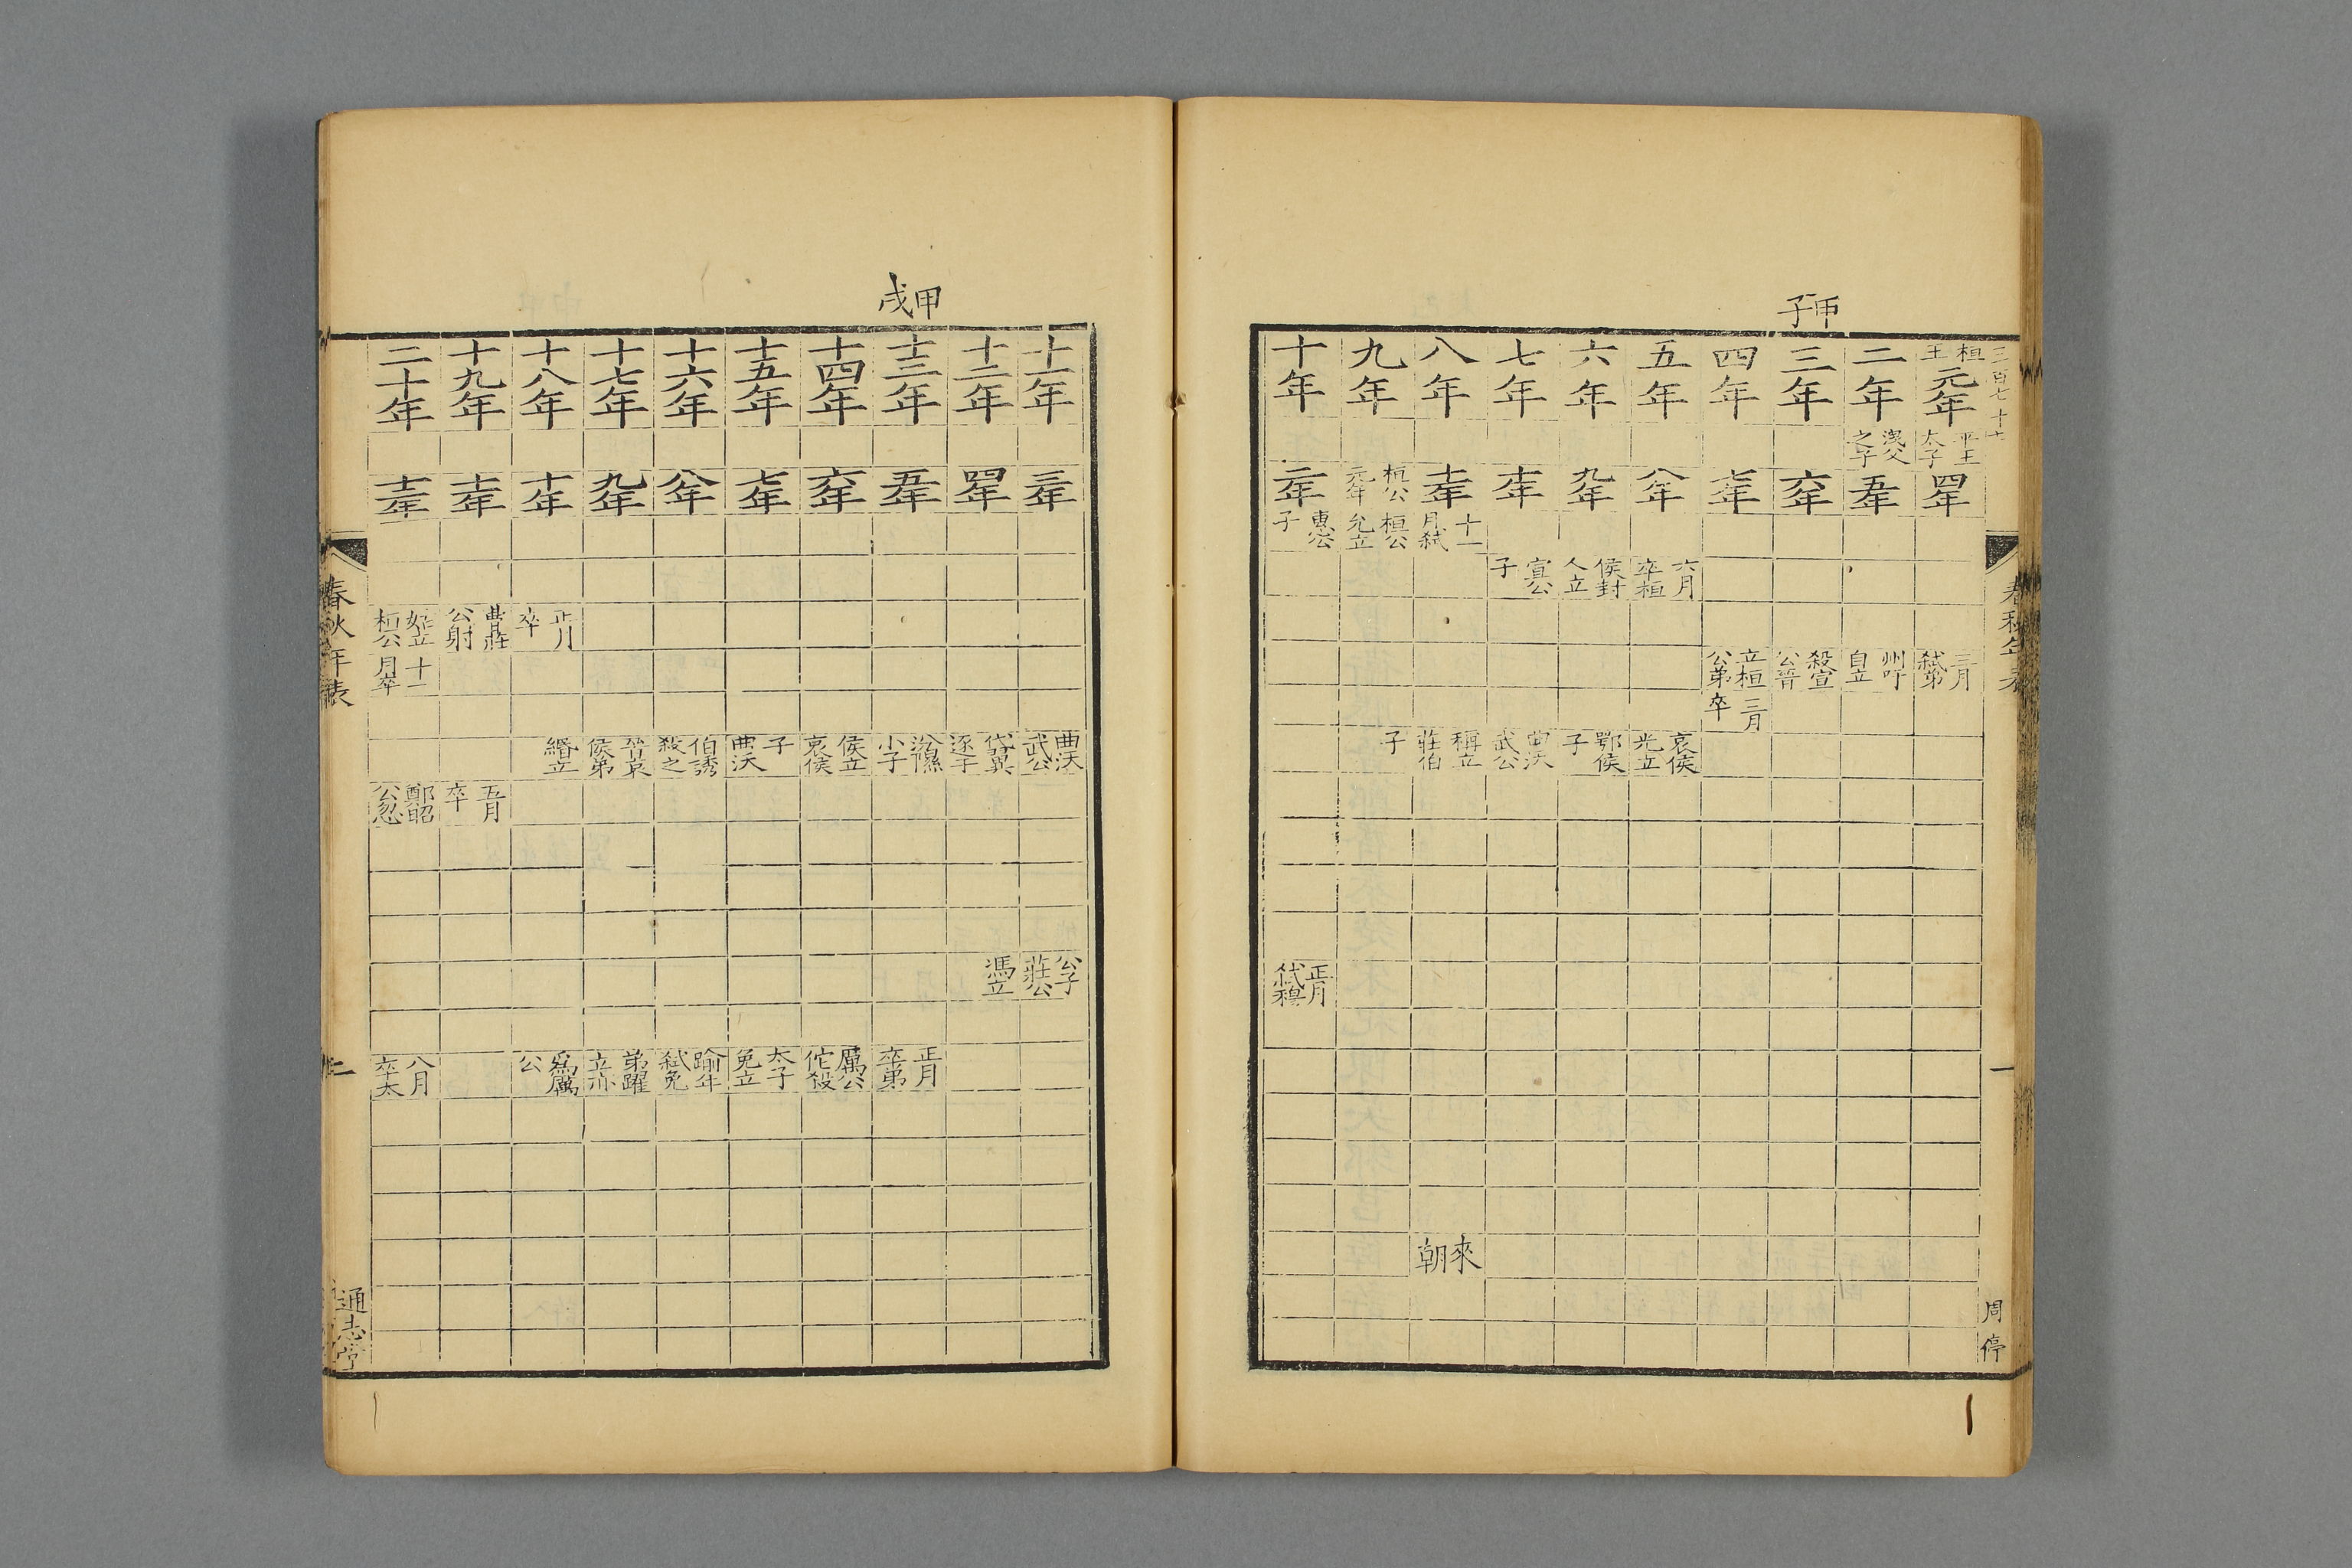 甲子
三百七十七
桓王元年
平王太子
四年
三月弑弟
二年
洩父之子
五年
州吁自立
三年
六年
殺宣公晉
四年
七年
立桓公弟
三月卒
五年
八年
六月卒桓
哀侯光立
六年
九年
侯封人立
鄂侯子
七年
十年
宣公子
曲沃武公
八年
十一年
十一月弑
稱立莊伯
來朝
九年
桓公元年
桓公允立
子
十年
二年
惠公子
正月弑穆
春秋年表
一
周停
甲戌
十一年
三年
曲沃武公
公子莊公
十二年
四年
伐翼逐于
馮立
十三年
五年
汾隰小子
正月卒弟
十四年
六年
侯立哀侯
厲公佗殺
十五年
七年
子曲沃
太子免立
十六年
八年
伯誘殺之
踰年弑免
十七年
九年
晉哀侯弟
弟躍立亦
十八年
十年
正月卒
緡立
爲厲公
十九年
十一年
曹莊公射
五月卒
二十年
十二年
姑立桓公
十一月卒
鄭昭公忽
八月卒太
春秋年表
二
通志堂